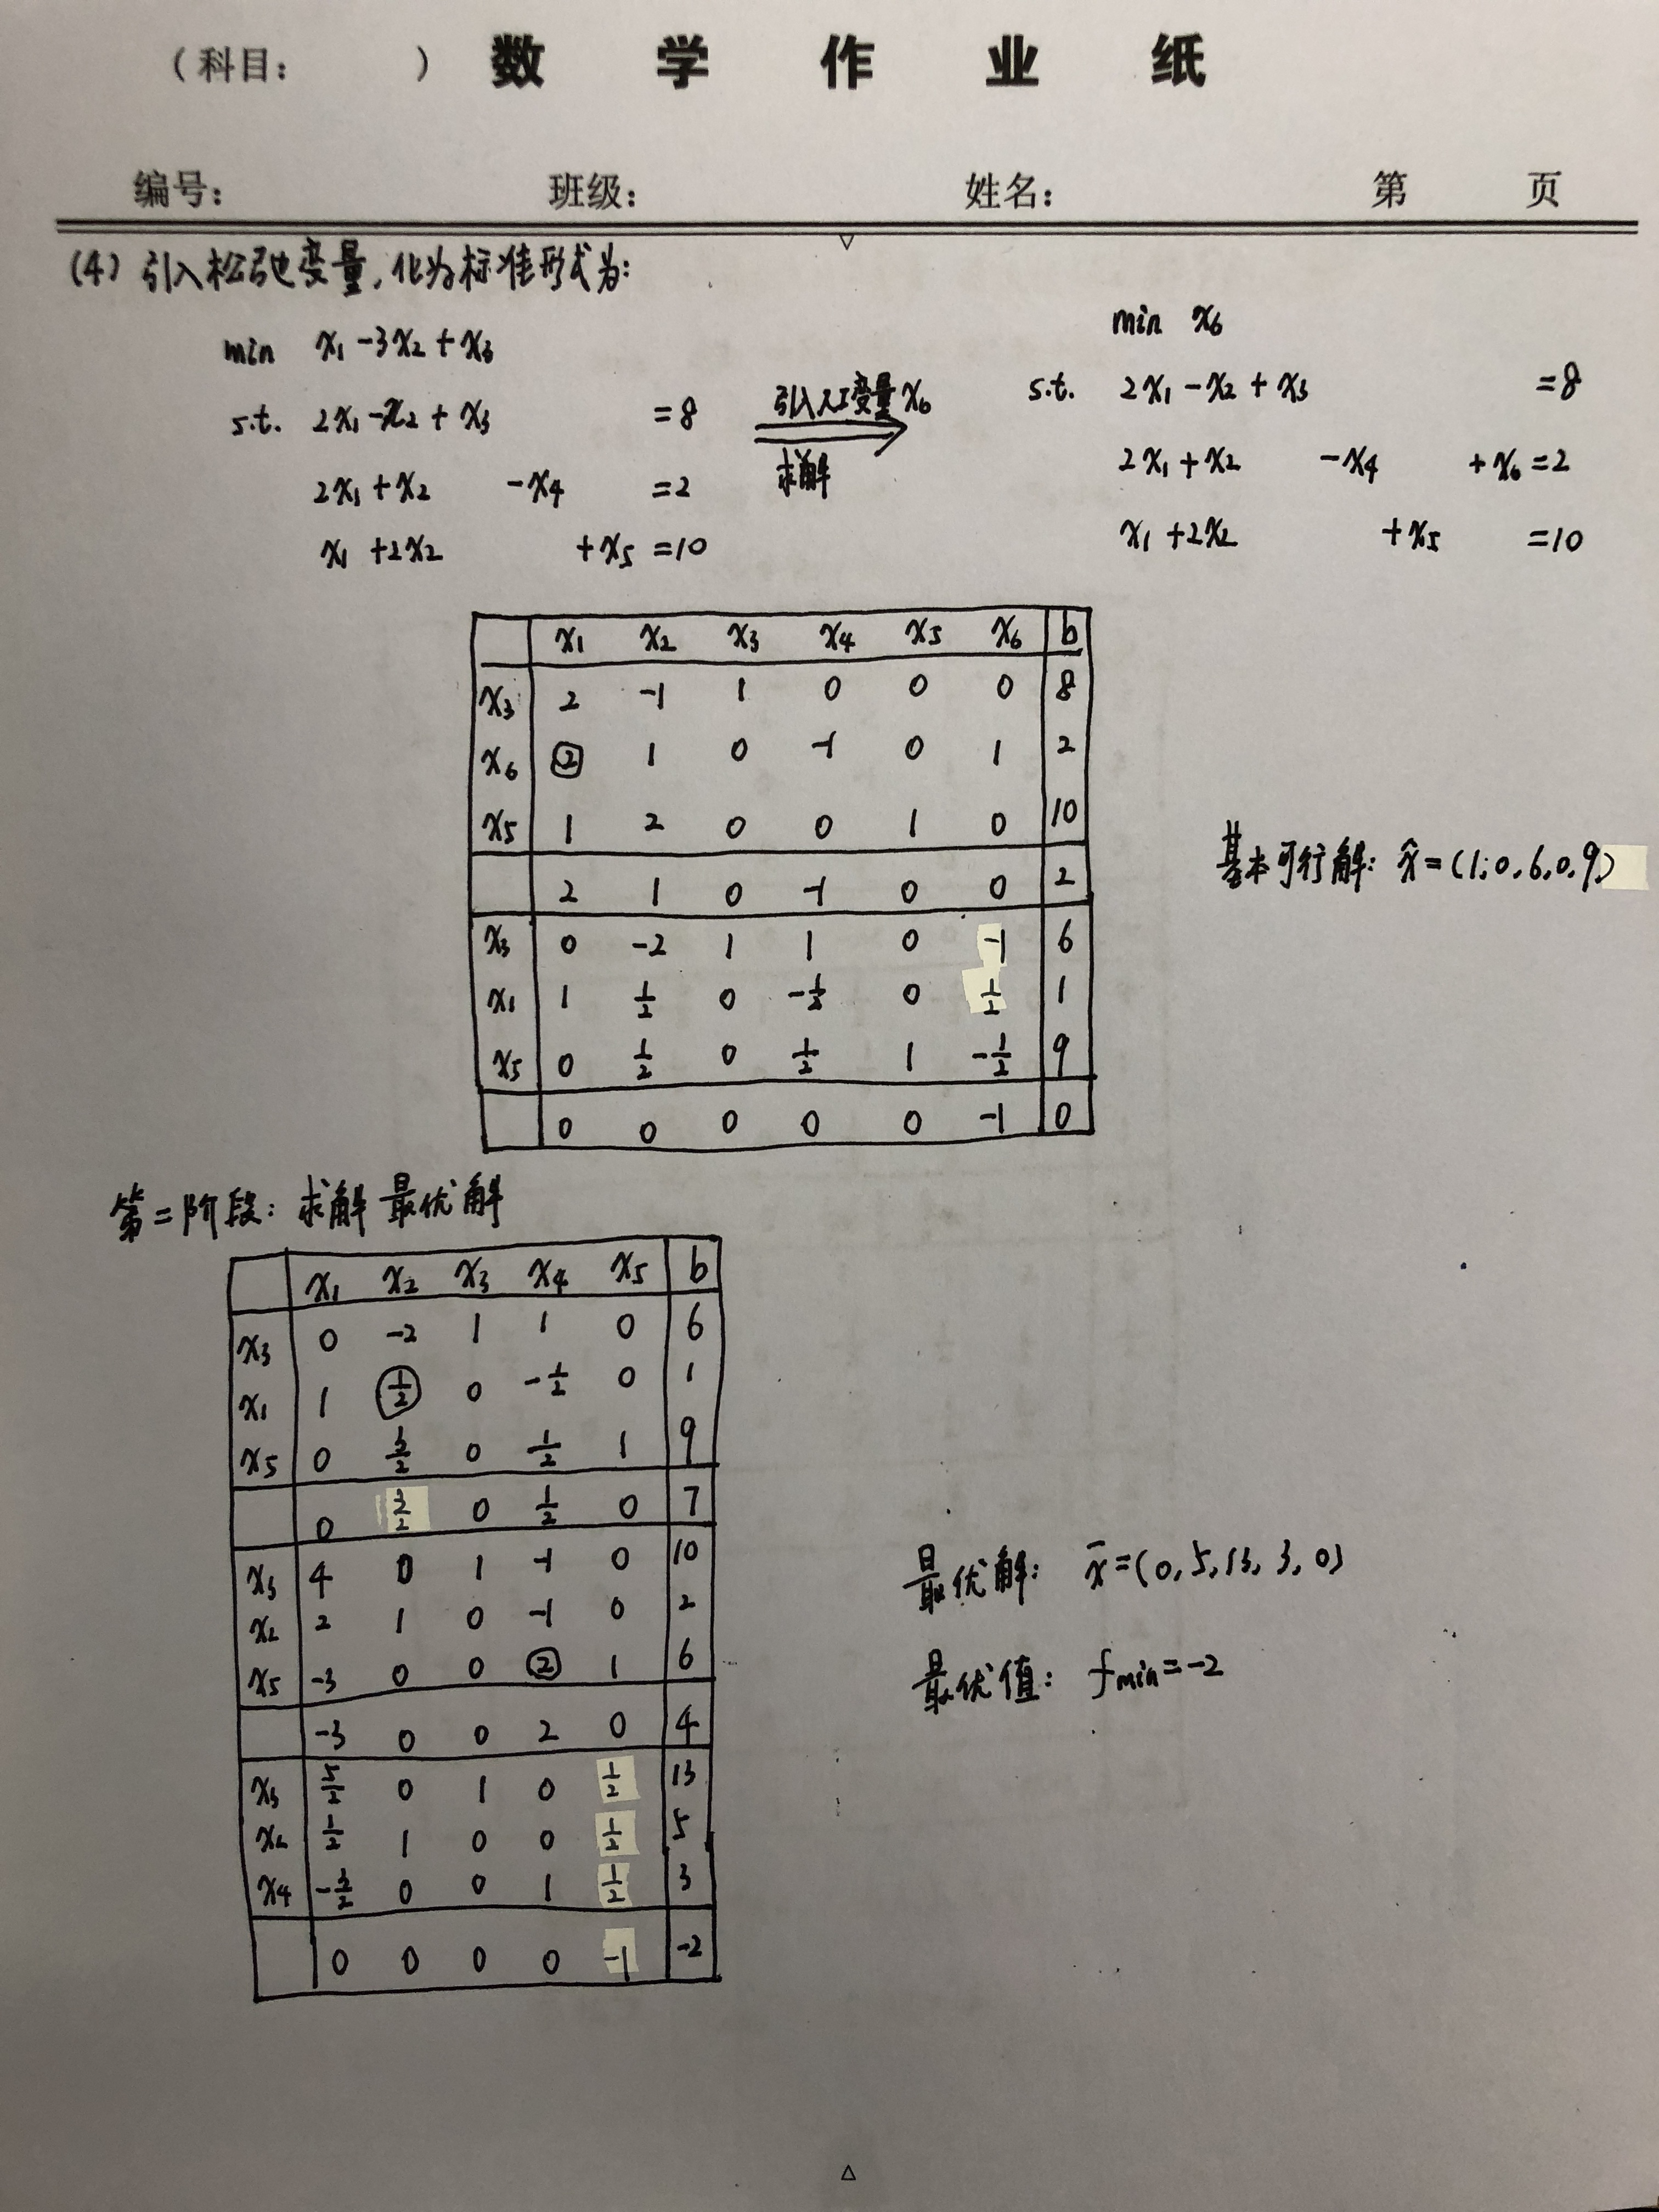 （科目：　　　）数 学 作 业 纸
编号：　　　班级：　　　姓名：　　　第　　页
(4) 引入松弛变量，化为标准形式为：
min x₁ -3x₂ + x₃
s.t. 2x₁ -x₂ + x₃ =8
2x₁ + x₂ -x₄ =2
x₁ +2x₂ +x₅ =10
引入人工变量 x₆
求解
min x₆
s.t. 2x₁ -x₂ + x₃ =8
2x₁ + x₂ -x₄ + x₆ =2
x₁ +2x₂ +x₅ =10
x₁ x₂ x₃ x₄ x₅ x₆ b
x₃ 2 -1 1 0 0 0 8
x₆ 2 1 0 -1 0 1 2
x₅ 1 2 0 0 1 0 10
2 1 0 -1 0 0 2
x₃ 0 -2 1 1 0 -1 6
x₁ 1 1/2 0 -1/2 0 1/2 1
x₅ 0 1/2 0 1/2 1 -1/2 9
0 0 0 0 0 -1 0
基本可行解：x̂=(1,0,6,0,9)
第二阶段：求解最优解
x₁ x₂ x₃ x₄ x₅ b
x₃ 0 -2 1 1 0 6
x₁ 1 1/2 0 -1/2 0 1
x₅ 0 3/2 0 1/2 1 9
0 3/2 0 1/2 0 7
x₃ 4 0 1 -1 0 10
x₂ 2 1 0 -1 0 2
x₅ -3 0 0 2 1 6
-3 0 0 2 0 4
x₃ 5/2 0 1 0 1/2 13
x₂ 1/2 1 0 0 1/2 5
x₄ -3/2 0 0 1 1/2 3
0 0 0 0 -1 -2
最优解：x̄=(0,5,13,3,0)
最优值：fmin=-2